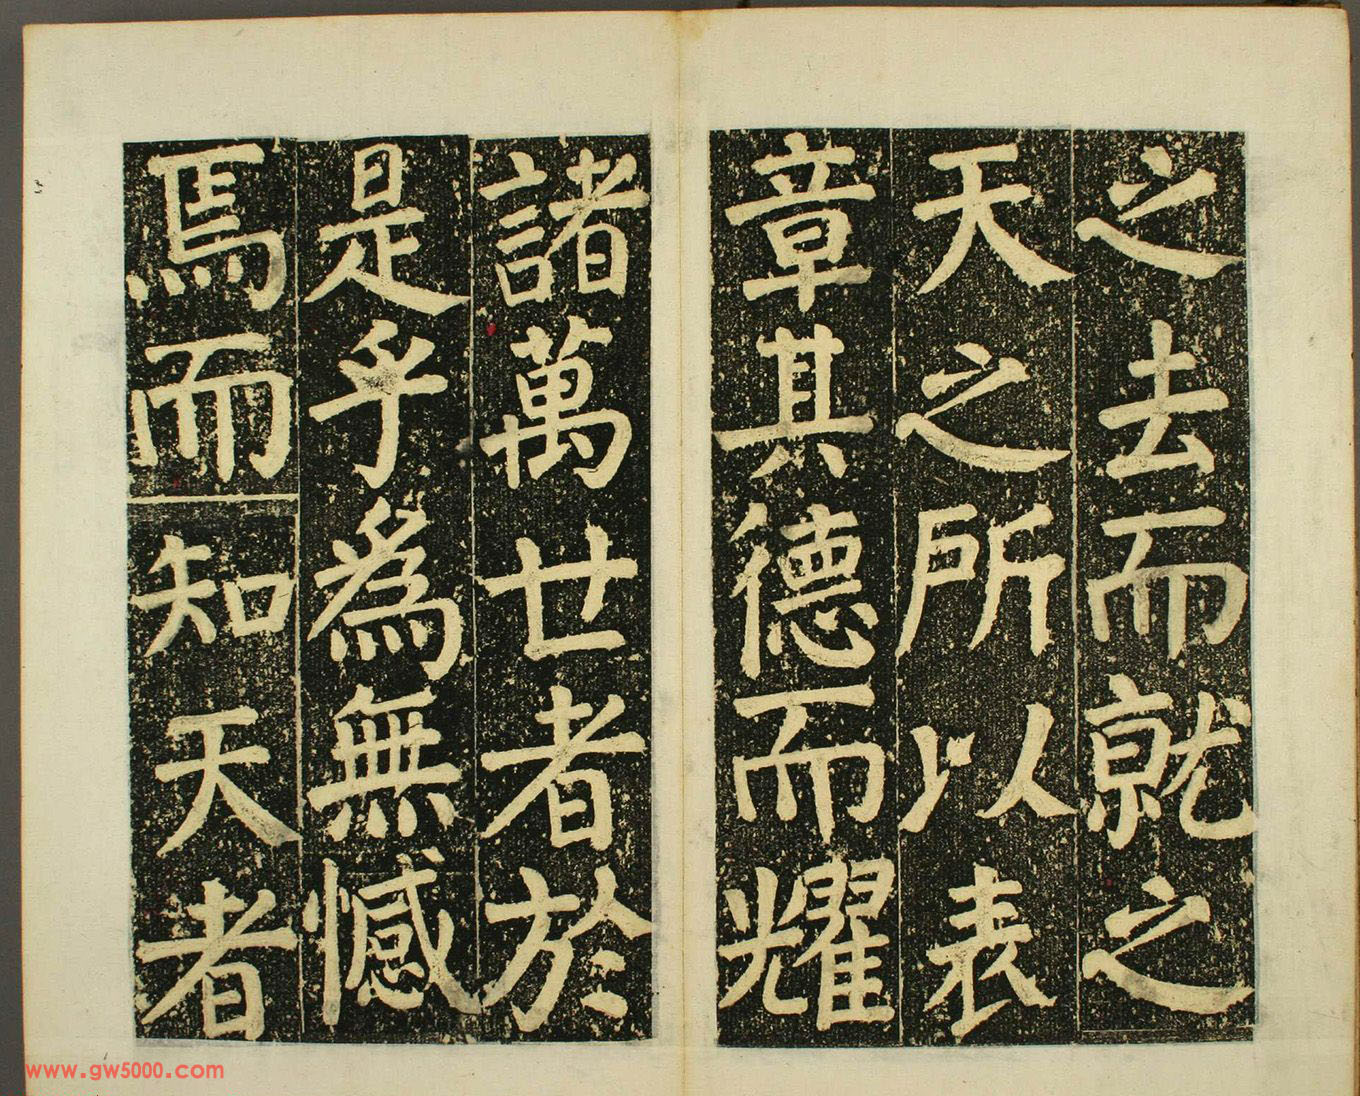 之去而就之
天之所以表
章其德而耀
諸萬世者於
是乎為無憾
焉而知天者
www.gw5000.com